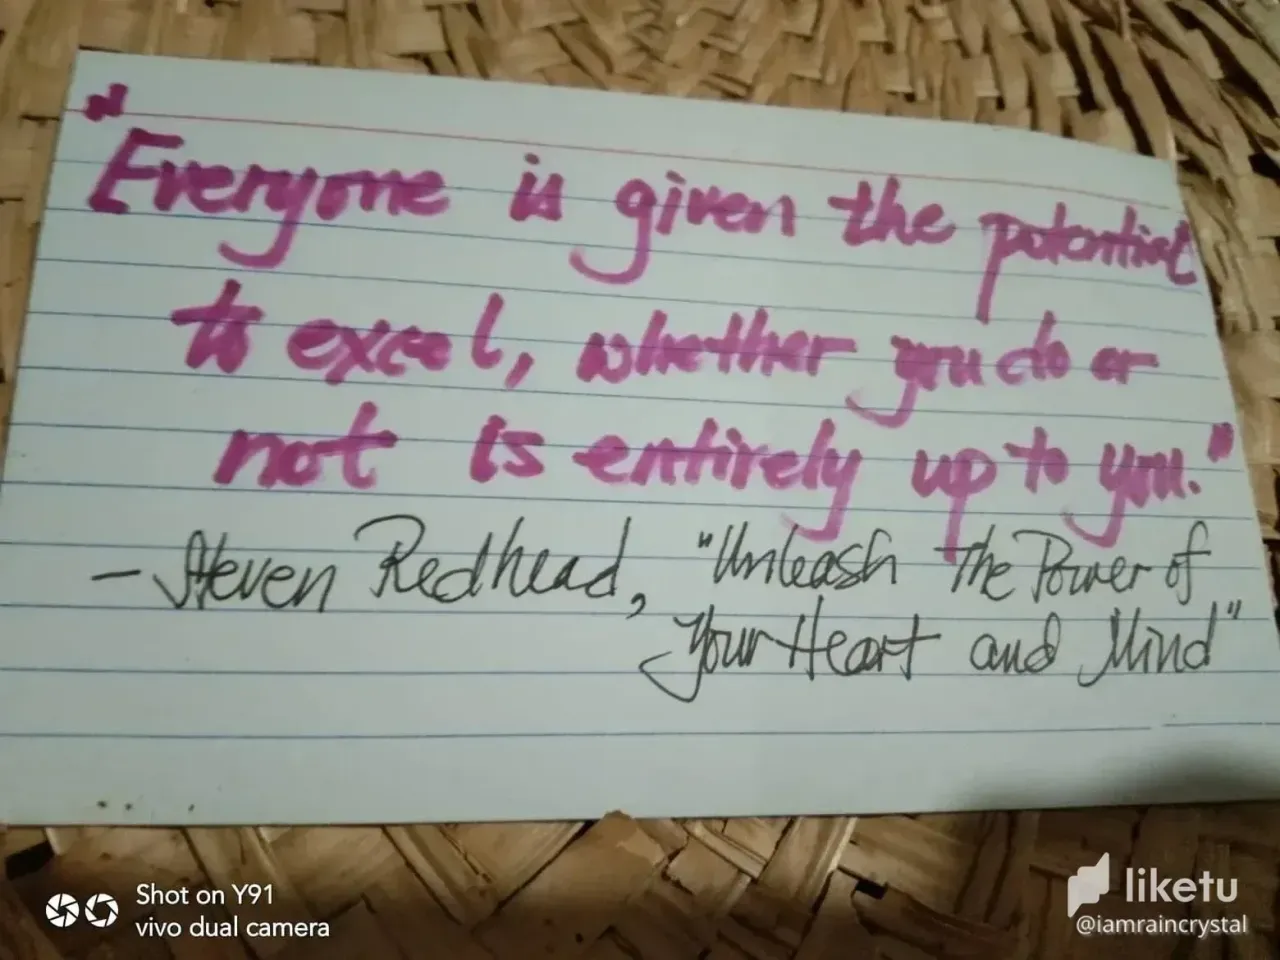 "Everyone is given the potential
to excel, whether you do or
not is entirely up to you."
- Steven Redhead, "Unleash The Power of
Your Heart and Mind"
Shot on Y91
vivo dual camera
liketu
@iamraincrystal